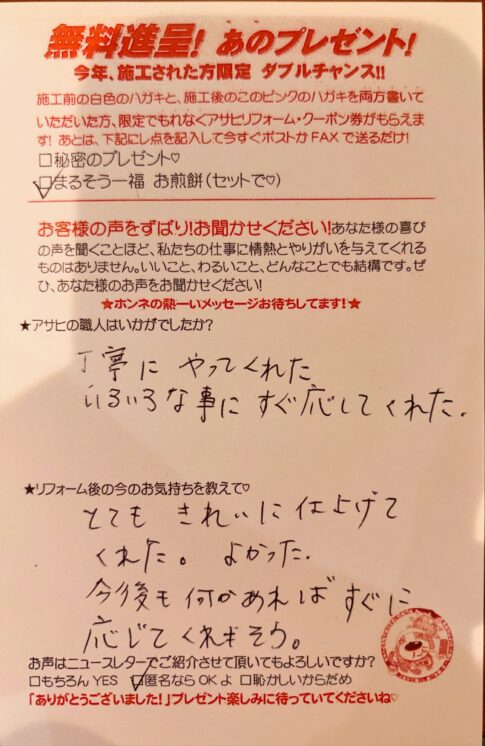 無料進呈! あのプレゼント!
今年、施工された方限定 ダブルチャンス!!
施工前の白色のハガキと、施工後のこのピンクのハガキを両方書いて
いただいた方、限定でもれなくアサヒリフォーム・クーポン券がもらえま
す! あとは、下記にレ点を記入して今すぐポストかFAXで送るだけ!
□秘密のプレゼント♡
☑まるそう一福 お煎餅(セットで♡)
お客様の声をずばり!お聞かせください!あなた様の喜び
の声を聞くことほど、私たちの仕事に情熱とやりがいを与えてくれる
ものはありません。いいこと、わるいこと、どんなことでも結構です。ぜ
ひ、あなた様のお声をお聞かせください!
★ホンネの熱ーいメッセージお待ちしてます!★
★アサヒの職人はいかがでしたか?
丁寧に やってくれた
いろいろな事に すぐ応してくれた.
★リフォーム後の今のお気持ちを教えて♡
とても きれいに仕上げて
くれた。 よかった.
今後も何かあれば すぐに
応じてくれそう。
お声はニュースレターでご紹介させて頂いてもよろしいですか?
□もちろん YES ☑匿名なら OK よ □恥かしいからだめ
「ありがとうございました!」プレゼント楽しみに待っていてくださいね♡